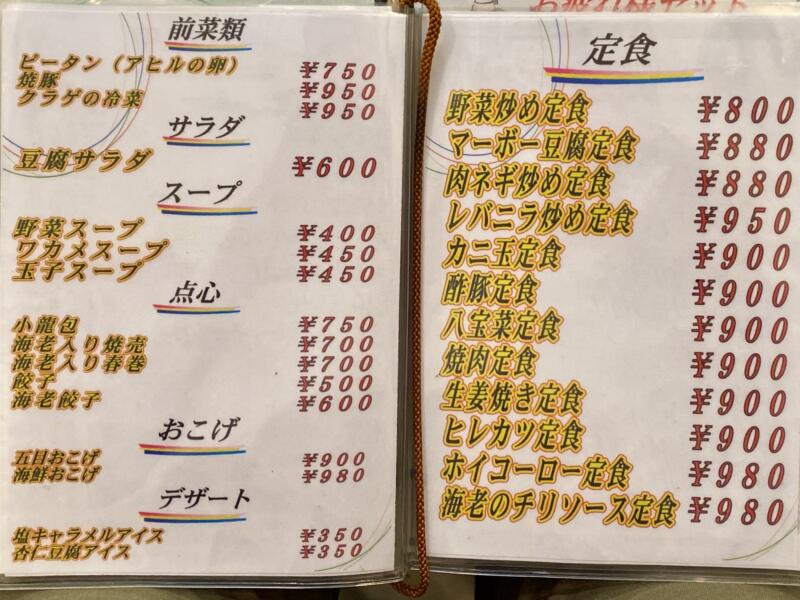 前菜類
ピータン（アヒルの卵） ¥750
焼豚 ¥950
クラゲの冷菜 ¥950
サラダ
豆腐サラダ ¥600
スープ
野菜スープ ¥400
ワカメスープ ¥450
玉子スープ ¥450
点心
小龍包 ¥750
海老入り焼売 ¥700
海老入り春巻 ¥700
餃子 ¥500
海老餃子 ¥600
おこげ
五目おこげ ¥900
海鮮おこげ ¥980
デザート
塩キャラメルアイス ¥350
杏仁豆腐アイス ¥350
お疲れ様セット
定食
野菜炒め定食 ¥800
マーボー豆腐定食 ¥880
肉ネギ炒め定食 ¥880
レバニラ炒め定食 ¥950
カニ玉定食 ¥900
酢豚定食 ¥900
八宝菜定食 ¥900
焼肉定食 ¥900
生姜焼き定食 ¥900
ヒレカツ定食 ¥900
ホイコーロー定食 ¥980
海老のチリソース定食 ¥980